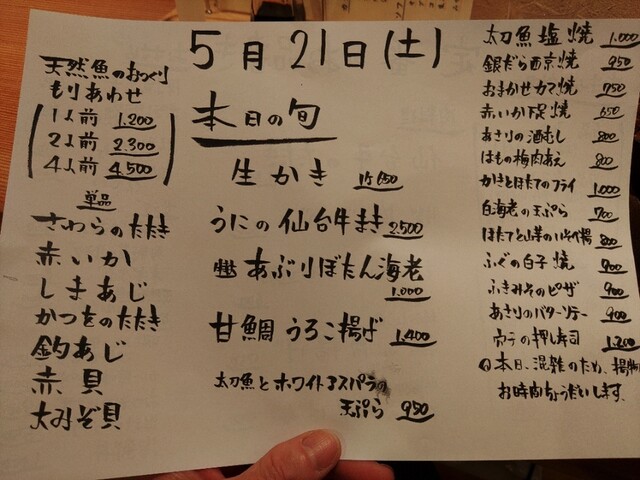 5月21日(土)
天然魚のおつくり
もりあわせ
1人前 1.200
2人前 2.300
4人前 4.500
単品
さわらのたたき
赤いか
しまあじ
かつをのたたき
釣あじ
赤貝
大みぞ貝
本日の旬
生かき
うにの仙台牛まき 2,500
あぶりぼたん海老
1.000
甘鯛 うろこ揚げ 1.400
太刀魚とホワイトアスパラの
天ぷら 950
太刀魚塩焼 1.000
銀だら西京焼 950
おまかせカマ焼 750
赤いか下足焼 650
あさりの酒むし 800
はもの梅肉あえ 800
かきとほたてのフライ 1.000
白海老の天ぷら 700
ほたてと山芋のいそべ揚 800
ふぐの白子焼 900
ふきみそのピザ 900
あさりのバターソテー 900
の押し寿司 1.200
本日、混雑のため、揚物
お時間ちょうだいします。